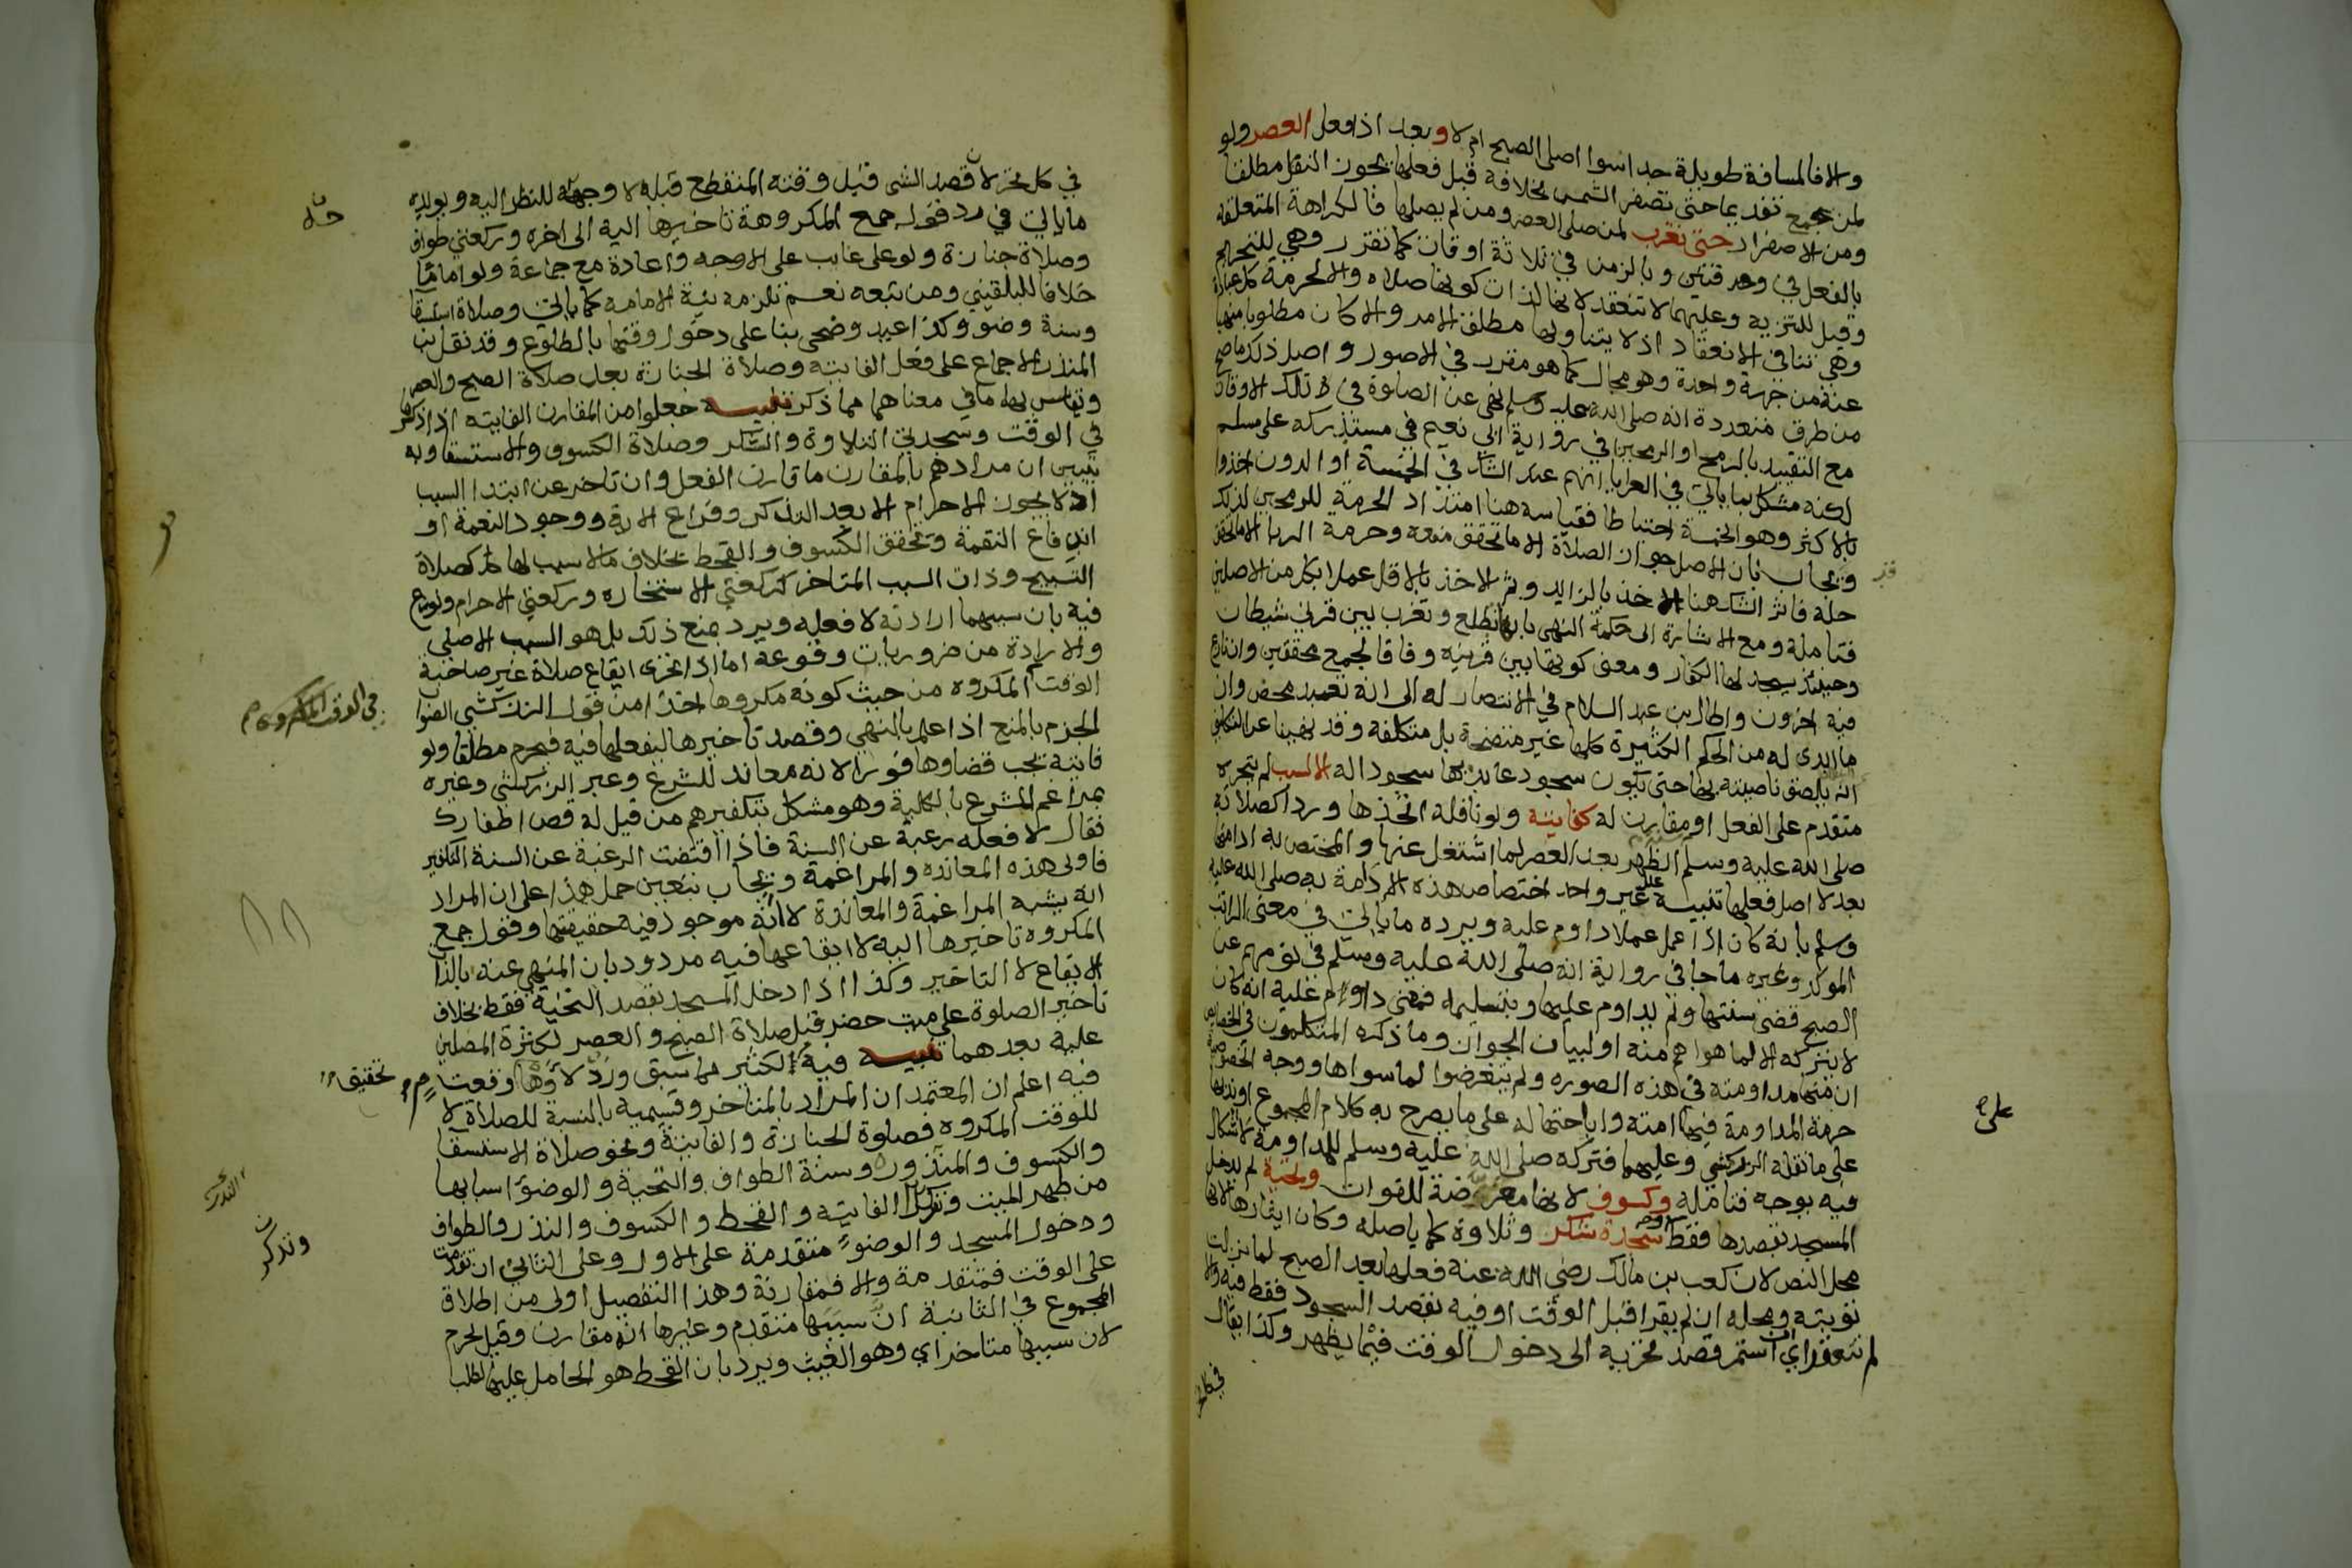 والا فالمسافة طويلة جدا سوا اصلى الصبح ام لا وبعد اذا فعل العصر ولو
لمن جمع تقديما حتى تصفر الشمس بخلافه قبل فعلها يجوز النفل مطلقا
ومن الاصفرار حتى تغرب لمن صلى العصر ومن لم يصلها فالكراهة المتعلقة
بالفعل في وقتين وبالزمن في ثلاثة اوقات كما تقرر وهي للتحريم
وقيل للتنزيه وعليهما لا تنعقد لانها لذات كونها صلاه والا لحرمة كل عبادة
وهي تنافي الانعقاد اذ لا يتناولها مطلق الامر والا كان مطلوبا منهيا
عنه من جهة واحدة وهو محال كما هو مقرر في الاصول واصل ذلك ما صح
من طرق متعددة انه صلى الله عليه وسلم نهى عن الصلوة في تلك الاوقات
مع التقييد بالرمح او الرمحين في رواية ابي نعيم في مستخرجه على مسلم
لكنه مشكل بما ياتي في العرايا انهم عند الشك في الخمسة او الدون اخذوا
بالاكثر وهو الخمسة احتياطا فقياسه هنا امتداد الحرمة للرمحين لذلك
ويجاب بان الاصل جواز الصلاة الا ما تحقق منعه وحرمة الربا الا ما تحقق
حله فاثر الشك هنا الاخذ بالزايد وثم الاخذ بالاقل عملا بكل من الاصلين
فتامله ومع الاشارة الى حكمة النهي بانها تطلع وتغرب بين قرني شيطان
وحينئذ يسجد لها الكفار ومعنى كونها بين قرنيه وفاقا لجمع محققين وان نازع
فيه اخرون واطال ابن عبد السلام في الانتصار له الى انه تعبد محض وان
ما ابدى له من الحكم الكثيرة كلها غير متضحة بل متكلفة وقد نهينا عن التكلف
انه يلصق ناصيته بها حتى يكون سجود عابديها سجودا له الا لسبب لم يتحره
متقدم على الفعل او مقارن له كفايتة ولو نافلة اتخذها وردا كصلاته
صلى الله عليه وسلم الظهر بعد العصر لما اشتغل عنها والمختص به ادامتها
بعد لا اصل فعلها تنبيه علل غير واحد اختصاص هذه الادامة به صلى الله عليه
وسلم بانه كان اذا عمل عملا داوم عليه ويرده ما ياتي في معنى الراتب
الموكد وغيره ما جا في رواية انه صلى الله عليه وسلم في نومهم عن
الصبح قضى سنتها ولم يداوم عليها وبتسليمه فمعنى داوم عليه انه كان
لا يتركه الا لما هو اهم منه او لبيان الجواز وما ذكره المتكلمون في الخصايص
ان منها مداومته في هذه الصوره ولم يتعرضوا لما سواها ووجه الخصوصية
حرمة المداومة فيها امته واباحتها له على ما يصرح به كلام المجموع او ندبها
على ما نقله الزركشي وعليهما فتركه صلى الله عليه وسلم للمداومة لا اشكال
فيه بوجه فتامله وكسوف لانها معرضة للفوات وتحية لم يدخل
المسجد بقصدها فقط وسجدة شكر وتلاوة كما باصله وكان ايثارها لانها
محل النص لان كعب بن مالك رضي الله عنه فعلها بعد الصبح لما نزلت
توبته ومحله ان لم يقرا قبل الوقت او فيه بقصد السجود فقط فيه والا
لم تنعقد اي ان استمر قصد تحريه الى دخول الوقت فيما يظهر وكذا يقال
في كل
على
في كل تحر لان قصد الشي قبل وقته المنقطع قبله لا وجه للنظر اليه ويويده
ما ياتي في رد قول جمع المكروهة تاخيرها اليه الى اخره وركعتي طواف
وصلاة جنازة ولو على غايب على الاوجه واعادة مع جماعة ولو اماما
خلافا للبلقيني ومن تبعه نعم تلزمه نية الامامه كما ياتي وصلاة استسقا
وسنة وضو وكذا عيد وضحى بنا على دخول وقتها بالطلوع وقد نقل ابن
المنذر الاجماع على فعل الفايتة وصلاة الجنازة بعد صلاة الصبح والعصر
وتقاس بها ما في معناهما مما ذكر تنبيه جعلوا من المقارن الفايته اذا ذكرها
في الوقت وسجدتي التلاوة والشكر وصلاة الكسوف والاستسقا وبه
يتبين ان مرادهم بالمقارن ما قارن الفعل وان تاخر عن ابتدا السبب
اذ لا يجوز الاحرام الا بعد التذكر وفراغ الاية ووجود النعمة او
اندفاع النقمة وتحقق الكسوف والقحط بخلاف ما لا سبب لها كصلاة
التسبيح وذات السبب المتاخر كركعتي الاستخاره وركعتي الاحرام ونوزع
فيه بان سببهما ارادته لا فعله ويرد بمنع ذلك بل هو السبب الاصلي
والارادة من ضروريات وقوعه اما اذا تحرى ايقاع صلاة غير صاحبة
الوقت المكروه من حيث كونه مكروها اخذا من قول الزركشي الصواب
الجزم بالمنع اذا علم بالنهي وقصد تاخيرها ليفعلها فيه فيحرم مطلقا ولو
فايتة يجب قضاوها فورا لانه معاند للشرع وعبر الزركشي وغيره
بمراغم للشرع بالكلية وهو مشكل بتكفيرهم من قيل له قص اظفارك
فقال لا افعله رغبة عن السنة فاذا اقتضت الرغبة عن السنة التكفير
فاولى هذه المعاندة والمراغمة ويجاب بتعين حمل هذا على ان المراد
انه يشبه المراغمة والمعاندة لا انه موجود فيه حقيقتها وقول جمع
المكروه تاخيرها اليه لا ايقاعها فيه مردود بان المنهي عنه بالذات
الايقاع لا التاخير وكذا اذا دخل المسجد بقصد التحية فقط بخلاف
تاخير الصلوة على ميت حضر قبل صلاة الصبح والعصر لكثرة المصلين
عليه بعدهما تنبيه فيه الكثير مما سبق ورد لاوهام وقعت
فيه اعلم ان المعتمد ان المراد بالمتاخر وقسيميه بالنسبة للصلاة لا
للوقت المكروه فصلوة الجنازة والفايتة ونحو صلاة الاستسقا
والكسوف والمنذورة وسنة الطواف والتحية والوضو اسبابها
من طهر الميت وتذكر الفايتة والقحط والكسوف والنذر والطواف
ودخول المسجد والوضو متقدمة على الاول وعلى الثاني ان تقدمت
على الوقت فمتقدمة والا فمقارنة وهذا التفصيل اولى من اطلاق
المجموع في الثانية ان سببها متقدم وغيرها انه مقارن وقيل تحرم
لان سببها متاخر اي وهو الغيث ويرد بان القحط هو الحامل عليها لطلب
في الوقت المكروه
تحقيق
وتذكر